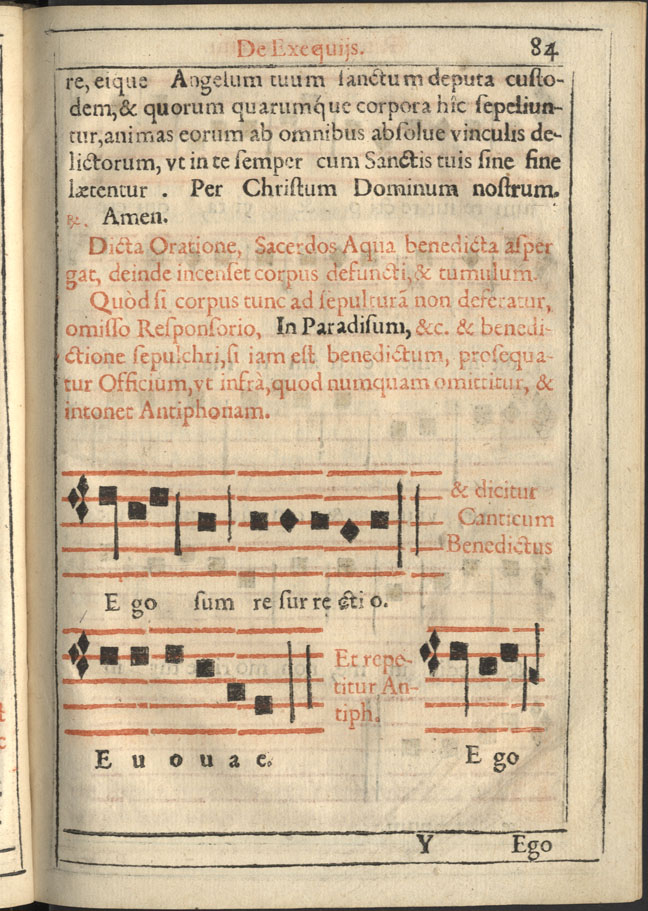 De Exequijs. 84
re, eique Angelum tuum ſanctum deputa cuſto-
dem, & quorum quarumq́ue corpora hîc ſepeliun-
tur, animas eorum ab omnibus abſolue vinculis de-
lictorum, vt in te ſemper cum Sanctis tuis ſine fine
lætentur . Per Chriſtum Dominum noſtrum.
℞. Amen.
Dicta Oratione, Sacerdos Aqua benedicta aſper
gat, deinde incenſet corpus defuncti, & tumulum.
Quòd ſi corpus tunc ad ſepulturã non deferatur,
omiſſo Reſponſorio, In Paradiſum, &c. & benedi-
ctione ſepulchri, ſi iam est benedictum, proſequa-
tur Officium, vt infrà, quod numquam omittitur, &
intonet Antiphonam.
& dicitur
Canticum
Benedictus
E go ſum re ſur re cti o.
Et repe-
titur An-
tiph.
E u o u a e.
E go
Y Ego